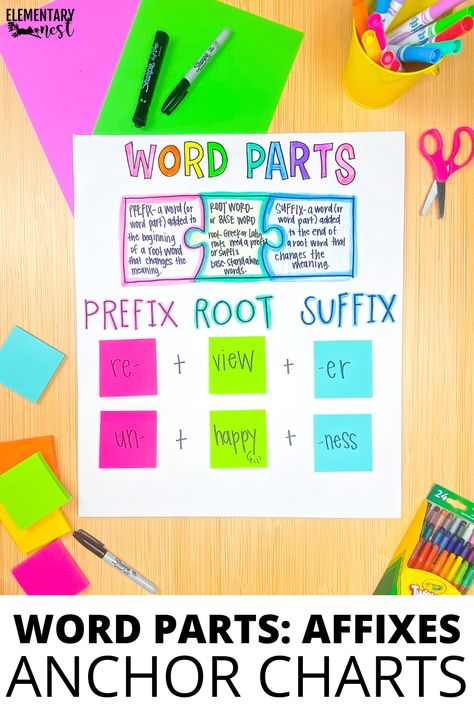 ELEMENTARY
nest
Sharpie
WORD PARTS
PREFIX- a word (or
word part) added to
the beginning
of a root word
that changes the
meaning.
ROOT WORD-
or BASE WORD
root- Greek or Latin
roots need a prefix
or suffix
base- stand alone
words.
SUFFIX- a word (or
word part) added
to the end of
a root word that
changes the
meaning.
PREFIX ROOT SUFFIX
re- + view + -er
un- + happy + -ness
Sharpie
24
WORD PARTS: AFFIXES
ANCHOR CHARTS